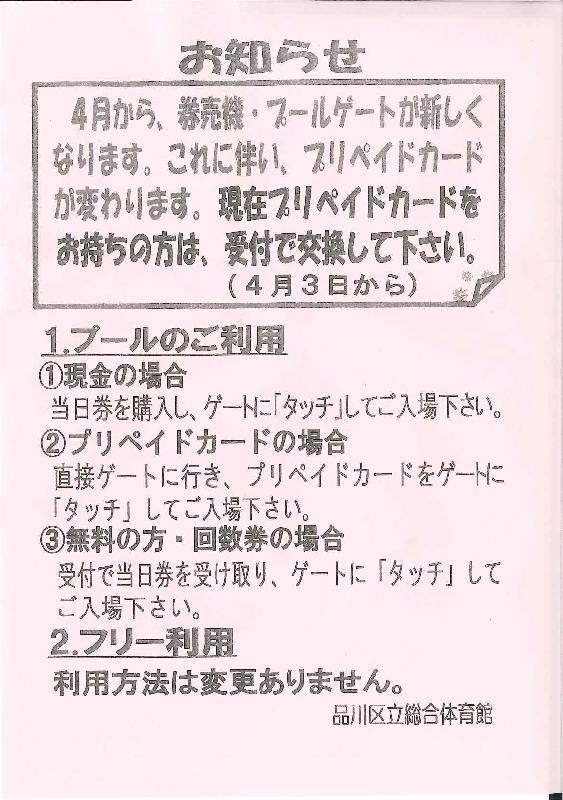 お知らせ
４月から、券売機・プールゲートが新しく
なります。これに伴い、プリペイドカード
が変わります。現在プリペイドカードを
お持ちの方は、受付で交換して下さい。
（４月３日から）
1.プールのご利用
①現金の場合
当日券を購入し、ゲートに「タッチ」してご入場下さい。
②プリペイドカードの場合
直接ゲートに行き、プリペイドカードをゲートに
「タッチ」してご入場下さい。
③無料の方・回数券の場合
受付で当日券を受け取り、ゲートに「タッチ」して
ご入場下さい。
2.フリー利用
利用方法は変更ありません。
品川区立総合体育館